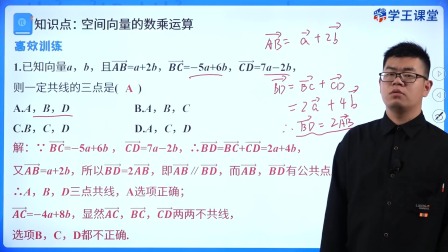 知识点：空间向量的数乘运算
学王课堂
高效训练
1.已知向量a，b，且AB=a+2b，BC=-5a+6b，CD=7a-2b，
则一定共线的三点是( A )
A.A，B，D B.A，B，C
C.B，C，D D.A，C，D
解：∵BC=-5a+6b，CD=7a-2b，∴BD=BC+CD=2a+4b，
又AB=a+2b，所以BD=2AB，即AB∥BD，而AB，BD有公共点
∴A，B，D三点共线，A选项正确；
AC=-4a+8b，显然AC，BC，CD两两不共线，
选项B，C，D都不正确.
AB = a + 2b
BD = BC + CD
= 2a + 4b
∴ BD = 2AB